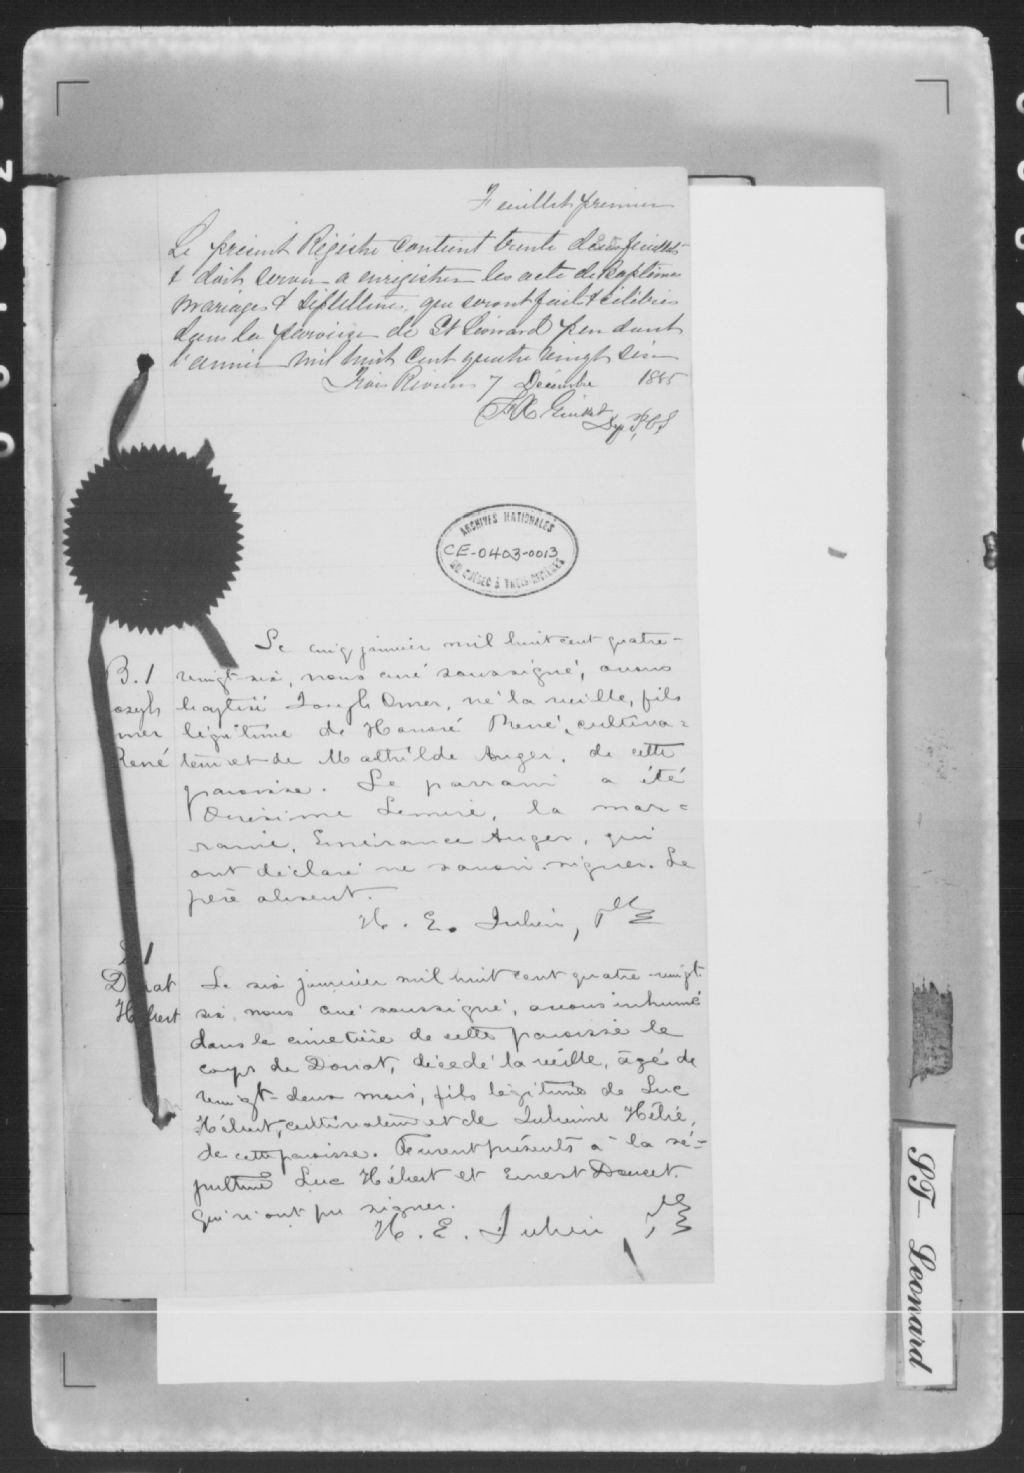 Feuillet premier
Le présent Régistre contient trente deux feuillets
& doit servir a enregistrer les acte de Baptêmes
Mariages & Sépultures, que seront fait & célébrés
dans la paroisse de St Léonard pendant
l'année mil huit cent quatre vingt six
Trois Rivieres 7 Décembre 1885
Dep P.C.S
ARCHIVES NATIONALES
CE-0403-0013
DU QUÉBEC À TROIS-RIVIÈRES
Le cinq janvier mil huit cent quatre-
B. 1 vingt-six, nous curé soussigné, avons
oseph baptisé Joseph Omer, né la veille, fils
mer légitime de Honoré René, cultiva=
René teur et de Mathilde Auger, de cette
paroisse. Le parrain a été
Onésime Lemire, la mar=
raine, Emérance Auger, qui
ont déclaré ne savoir signer. Le
père absent.
H. E. Julien, Ptre
1
Donat Le six janvier mil huit cent quatre-vingt
Hébert six, nous curé soussigné, avons inhumé
dans le cimetière de cette paroisse le
corps de Donat, décédé la veille, âgé de
vingt-deux mois, fils légitime de Luc
Hébert, cultivateur et de Julienne Hélie,
de cette paroisse. Furent présents à la sé-
pulture Luc Hébert et Ernest Doucet
qui n'ont pu signer.
H. E. Julien, Ptre
ST- Leonard